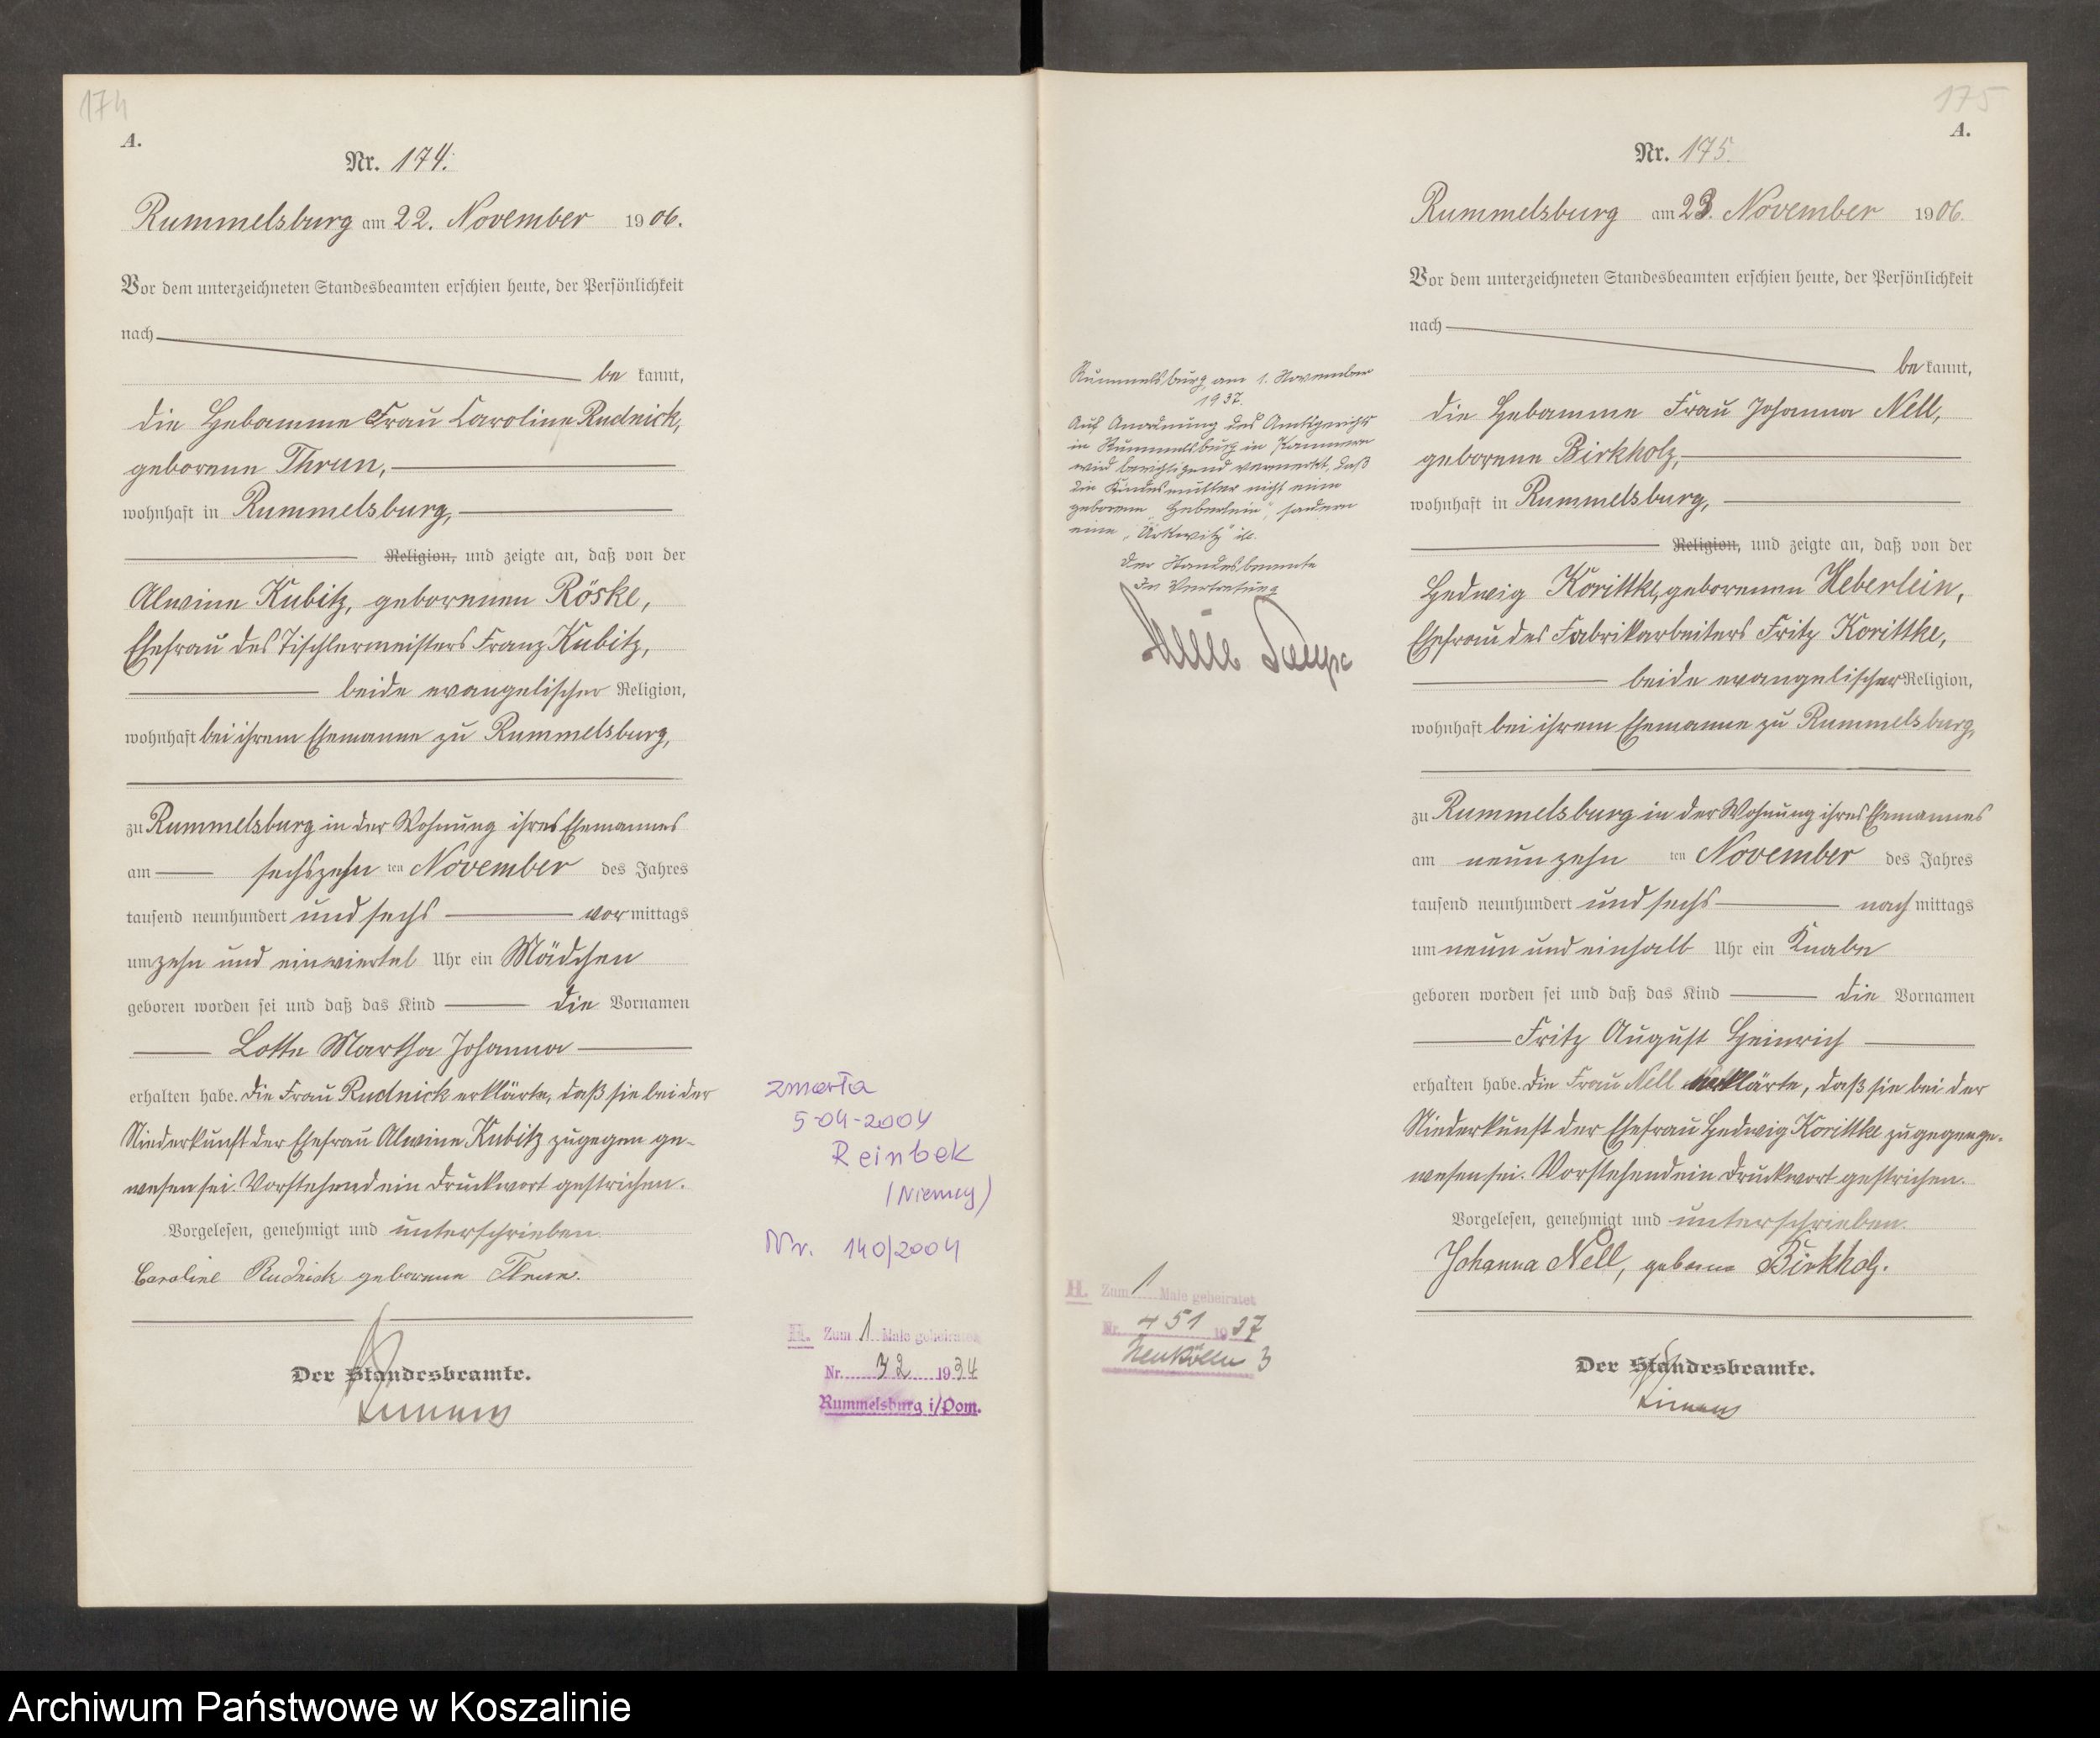 174
A.
Nr. 174.
Rummelsburg am 22. November 1906.
Vor dem unterzeichneten Standesbeamten erschien heute, der Persönlichkeit
nach
be kannt,
die Hebamme Frau Caroline Rudnick,
geborene Thrun,
wohnhaft in Rummelsburg,
Religion, und zeigte an, daß von der
Alwine Kubitz, geborenen Röske,
Ehefrau des Tischlermeisters Franz Kubitz,
beide evangelischer Religion,
wohnhaft bei ihrem Ehemanne zu Rummelsburg,
zu Rummelsburg in der Wohnung ihres Ehemannes
am sechszehn ten November des Jahres
tausend neunhundert und sechs vormittags
um zehn und einviertel Uhr ein Mädchen
geboren worden sei und daß das Kind die Vornamen
Lotte Martha Johanna
erhalten habe. Die Frau Rudnick erklärte, daß sie bei der
Niederkunft der Ehefrau Alwine Kubitz zugegen ge-
wesen sei. Vorstehend ein Druckwort gestrichen.
Vorgelesen, genehmigt und unterschrieben.
Caroline Rudnick geborene Thrun.
Der Standesbeamte.
zmarła
5-04-2004
Reinbek
(Niemcy)
Nr. 140/2004
H. Zum 1 Male geheiratet
Nr. 32 1934
Rummelsburg i/Pom.
175
A.
Nr. 175.
Rummelsburg am 23. November 1906.
Vor dem unterzeichneten Standesbeamten erschien heute, der Persönlichkeit
nach
be kannt,
die Hebamme Frau Johanna Nell,
geborene Birkholz,
wohnhaft in Rummelsburg,
Religion, und zeigte an, daß von der
Hedwig Korittke, geborenen Heberlein,
Ehefrau des Fabrikarbeiters Fritz Korittke,
beide evangelischer Religion,
wohnhaft bei ihrem Ehemanne zu Rummelsburg,
zu Rummelsburg in der Wohnung ihres Ehemannes
am neunzehn ten November des Jahres
tausend neunhundert und sechs nachmittags
um neun und einhalb Uhr ein Knabe
geboren worden sei und daß das Kind die Vornamen
Fritz August Heinrich
erhalten habe. Die Frau Nell erklärte, daß sie bei der
Niederkunft der Ehefrau Hedwig Korittke zugegen ge-
wesen sei. Vorstehend ein Druckwort gestrichen.
Vorgelesen, genehmigt und unterschrieben.
Johanna Nell, geborene Birkholz.
Der Standesbeamte.
Rummelsburg, am 1. November
1937.
Auf Anordnung des Amtsgerichts
in Rummelsburg in Pommern
wird berichtigend vermerkt, daß
die Kindesmutter nicht eine
geborene "Heberlein", sondern
eine "Urkwitz" ist.
Der Standesbeamte
In Vertretung
H. Zum 1 Male geheiratet
Nr. 451 1937
Neukölln 3
Archiwum Państwowe w Koszalinie